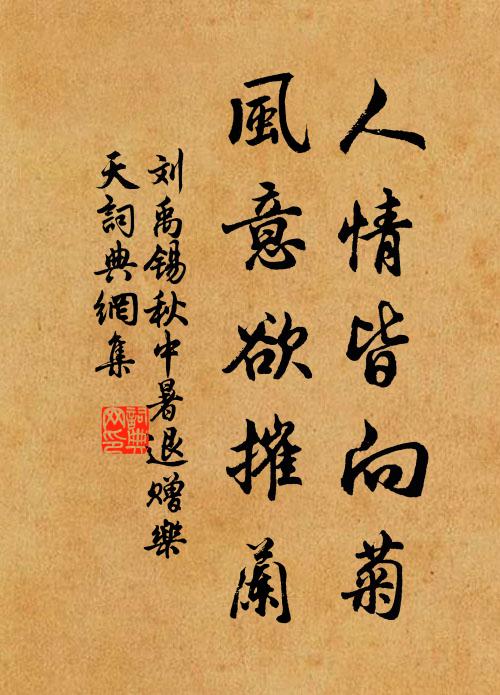 人情皆向菊
風意欲摧蘭
刘禹锡秋中暑退赠樂
天詞典網集
詞典
网印